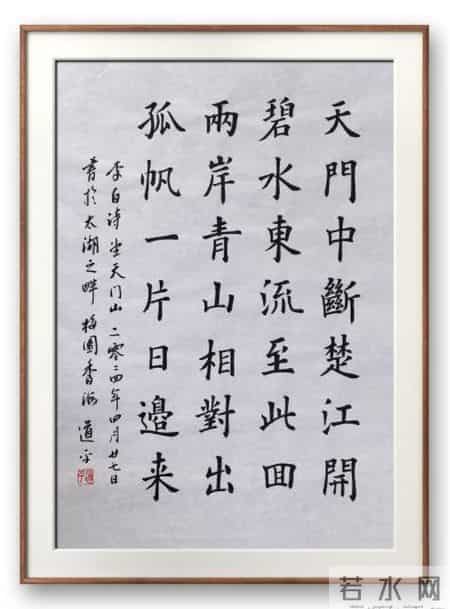 天門中斷楚江開
碧水東流至此囬
兩岸青山相對出
孤帆一片日邊来
李白诗 望天门山 二零二四年四月廿七日
書於太湖之畔 梅園香海 道平
若水网